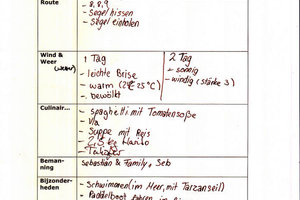 Route
- 8,8,9
- segel hissen
- segel einholen
Wind & Weer
1 Tag
- leichte Brise
- warm (25°C)
- bewölkt
2 Tag
- sonnig
- windig (stärke 3)
Culinair...
- spaghetti mit Tomatensoße
- Vla
- Suppe mit Reis
- 2,5 kg Haribo
Beman-
ning
sebastian & Family, Seb
Bijzonder-
heden
- Schwimmen (im Meer, mit Tarzanseil)
- Paddelboot fahren im